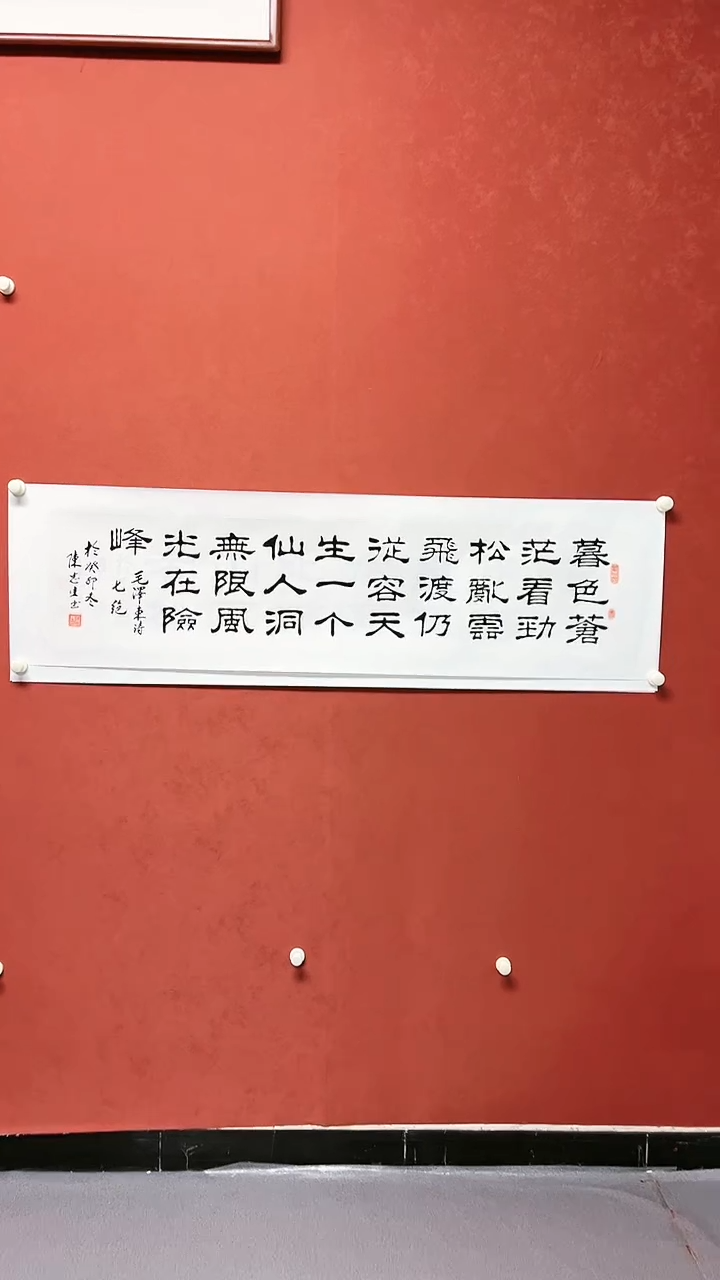 暮色蒼
茫看勁
松亂雲
飛渡仍
從容天
生一个
仙人洞
無限風
光在險
峰
毛澤東詩
七绝
於癸卯冬
陳志生书